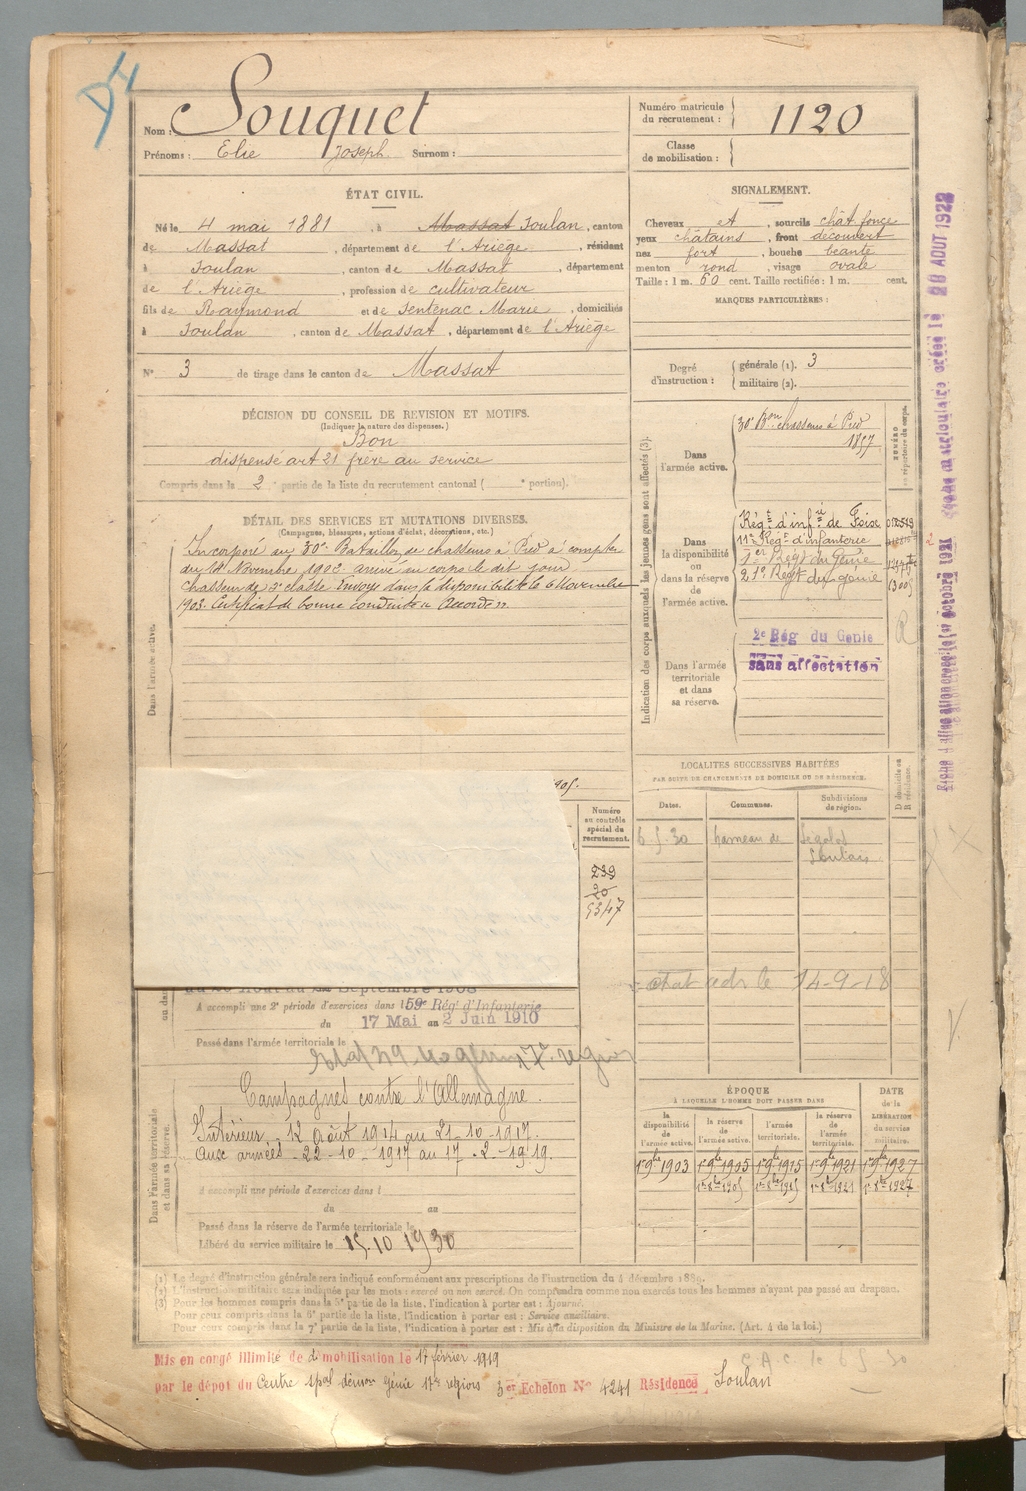 Nom : Souquet
Prénoms : Elie Joseph Surnom :
Numéro matricule du recrutement : 1120
Classe de mobilisation :
ÉTAT CIVIL.
Né le 4 mai 1881, à Massat Soulan, canton
de Massat, département de l'Ariège, résidant
à Soulan, canton de Massat, département
de l'Ariège, profession de cultivateur
fils de Raymond et de Sentenac Marie, domiciliés
à Soulan, canton de Massat, département de l'Ariège
N° 3 de tirage dans le canton de Massat
SIGNALEMENT.
Cheveux et, sourcils chât. foncé
yeux châtains, front découvert
nez fort, bouche béante
menton rond, visage ovale
Taille : 1 m. 60 cent. Taille rectifiée : 1 m. cent.
MARQUES PARTICULIÈRES :
Degré d'instruction : générale (1). 3
militaire (2).
DÉCISION DU CONSEIL DE REVISION ET MOTIFS.
(Indiquer la nature des dispenses.)
Bon
dispensé art 21 frère au service
Compris dans la 2e partie de la liste du recrutement cantonal ( e portion).
DÉTAIL DES SERVICES ET MUTATIONS DIVERSES.
(Campagnes, blessures, actions d'éclat, décorations, etc.)
Incorporé au 30e Bataillon de chasseurs à Pied à compter
du 14 Novembre 1902 arrivé au corps le dit jour
chasseur de 2e classe Envoyé dans la disponibilité le 6 Novembre
1903. Certificat de bonne conduite Accordé
Dans l'armée active.
Indication des corps auxquels les jeunes gens sont affectés (3).
NUMÉRO au répertoire du corps.
Dans l'armée active.
30e Bon chasseurs à Pied
1857
Dans la disponibilité ou dans la réserve de l'armée active.
Régt d'infrie de Foix
11e Régt d'infanterie
1er Régt du Génie
2e Régt du génie
Dans l'armée territoriale et dans sa réserve.
2e Rég du Génie
sans affectation
R
LOCALITÉS SUCCESSIVES HABITÉES
PAR SUITE DE CHANGEMENTS DE DOMICILE OU DE RÉSIDENCE.
Dates. Communes. Subdivisions de région. D domicile ou R résidence.
6-5-30 hameau de
Soulan
14-9-18
Numéro au contrôle spécial du recrutement.
239
20
5347
Septembre 1908
A accompli une 2e période d'exercices dans l 59e Rég' d'Infanterie
du 17 Mai au 2 Juin 1910
Passé dans l'armée territoriale le
Dans l'armée territoriale et dans sa réserve.
Campagnes contre l'Allemagne.
Intérieur 12 Août 1914 au 21-10-1917.
Aux armées -22-10-1917 au 17-2-1919.
A accompli une période d'exercices dans l
du au
Passé dans la réserve de l'armée territoriale le
Libéré du service militaire le 15.10 1930
ÉPOQUE
A LAQUELLE L'HOMME DOIT PASSER DANS
la disponibilité de l'armée active. la réserve de l'armée active. l'armée territoriale. la réserve de l'armée territoriale. DATE de la LIBÉRATION du service militaire.
1er 9bre 1903 1er 9bre 1905 1er 9bre 1915 1er 9bre 1921 1er 9bre 1927
(1) Le degré d'instruction générale sera indiqué conformément aux prescriptions de l'instruction du 4 décembre 1889.
(2) L'instruction militaire sera indiquée par les mots : exercé ou non exercé. On comprendra comme non exercés tous les hommes n'ayant pas passé au drapeau.
(3) Pour les hommes compris dans la 5e partie de la liste, l'indication à porter est : Ajourné.
Pour ceux compris dans la 6e partie de la liste, l'indication à porter est : Service auxiliaire.
Pour ceux compris dans la 7e partie de la liste, l'indication à porter est : Mis à la disposition du Ministre de la Marine. (Art. 4 de la loi.)
Mis en congé illimité de démobilisation le 17 février 1919
par le dépôt du Centre spal démon Génie 17e région 3er Echelon N° 4241 Résidence Soulan